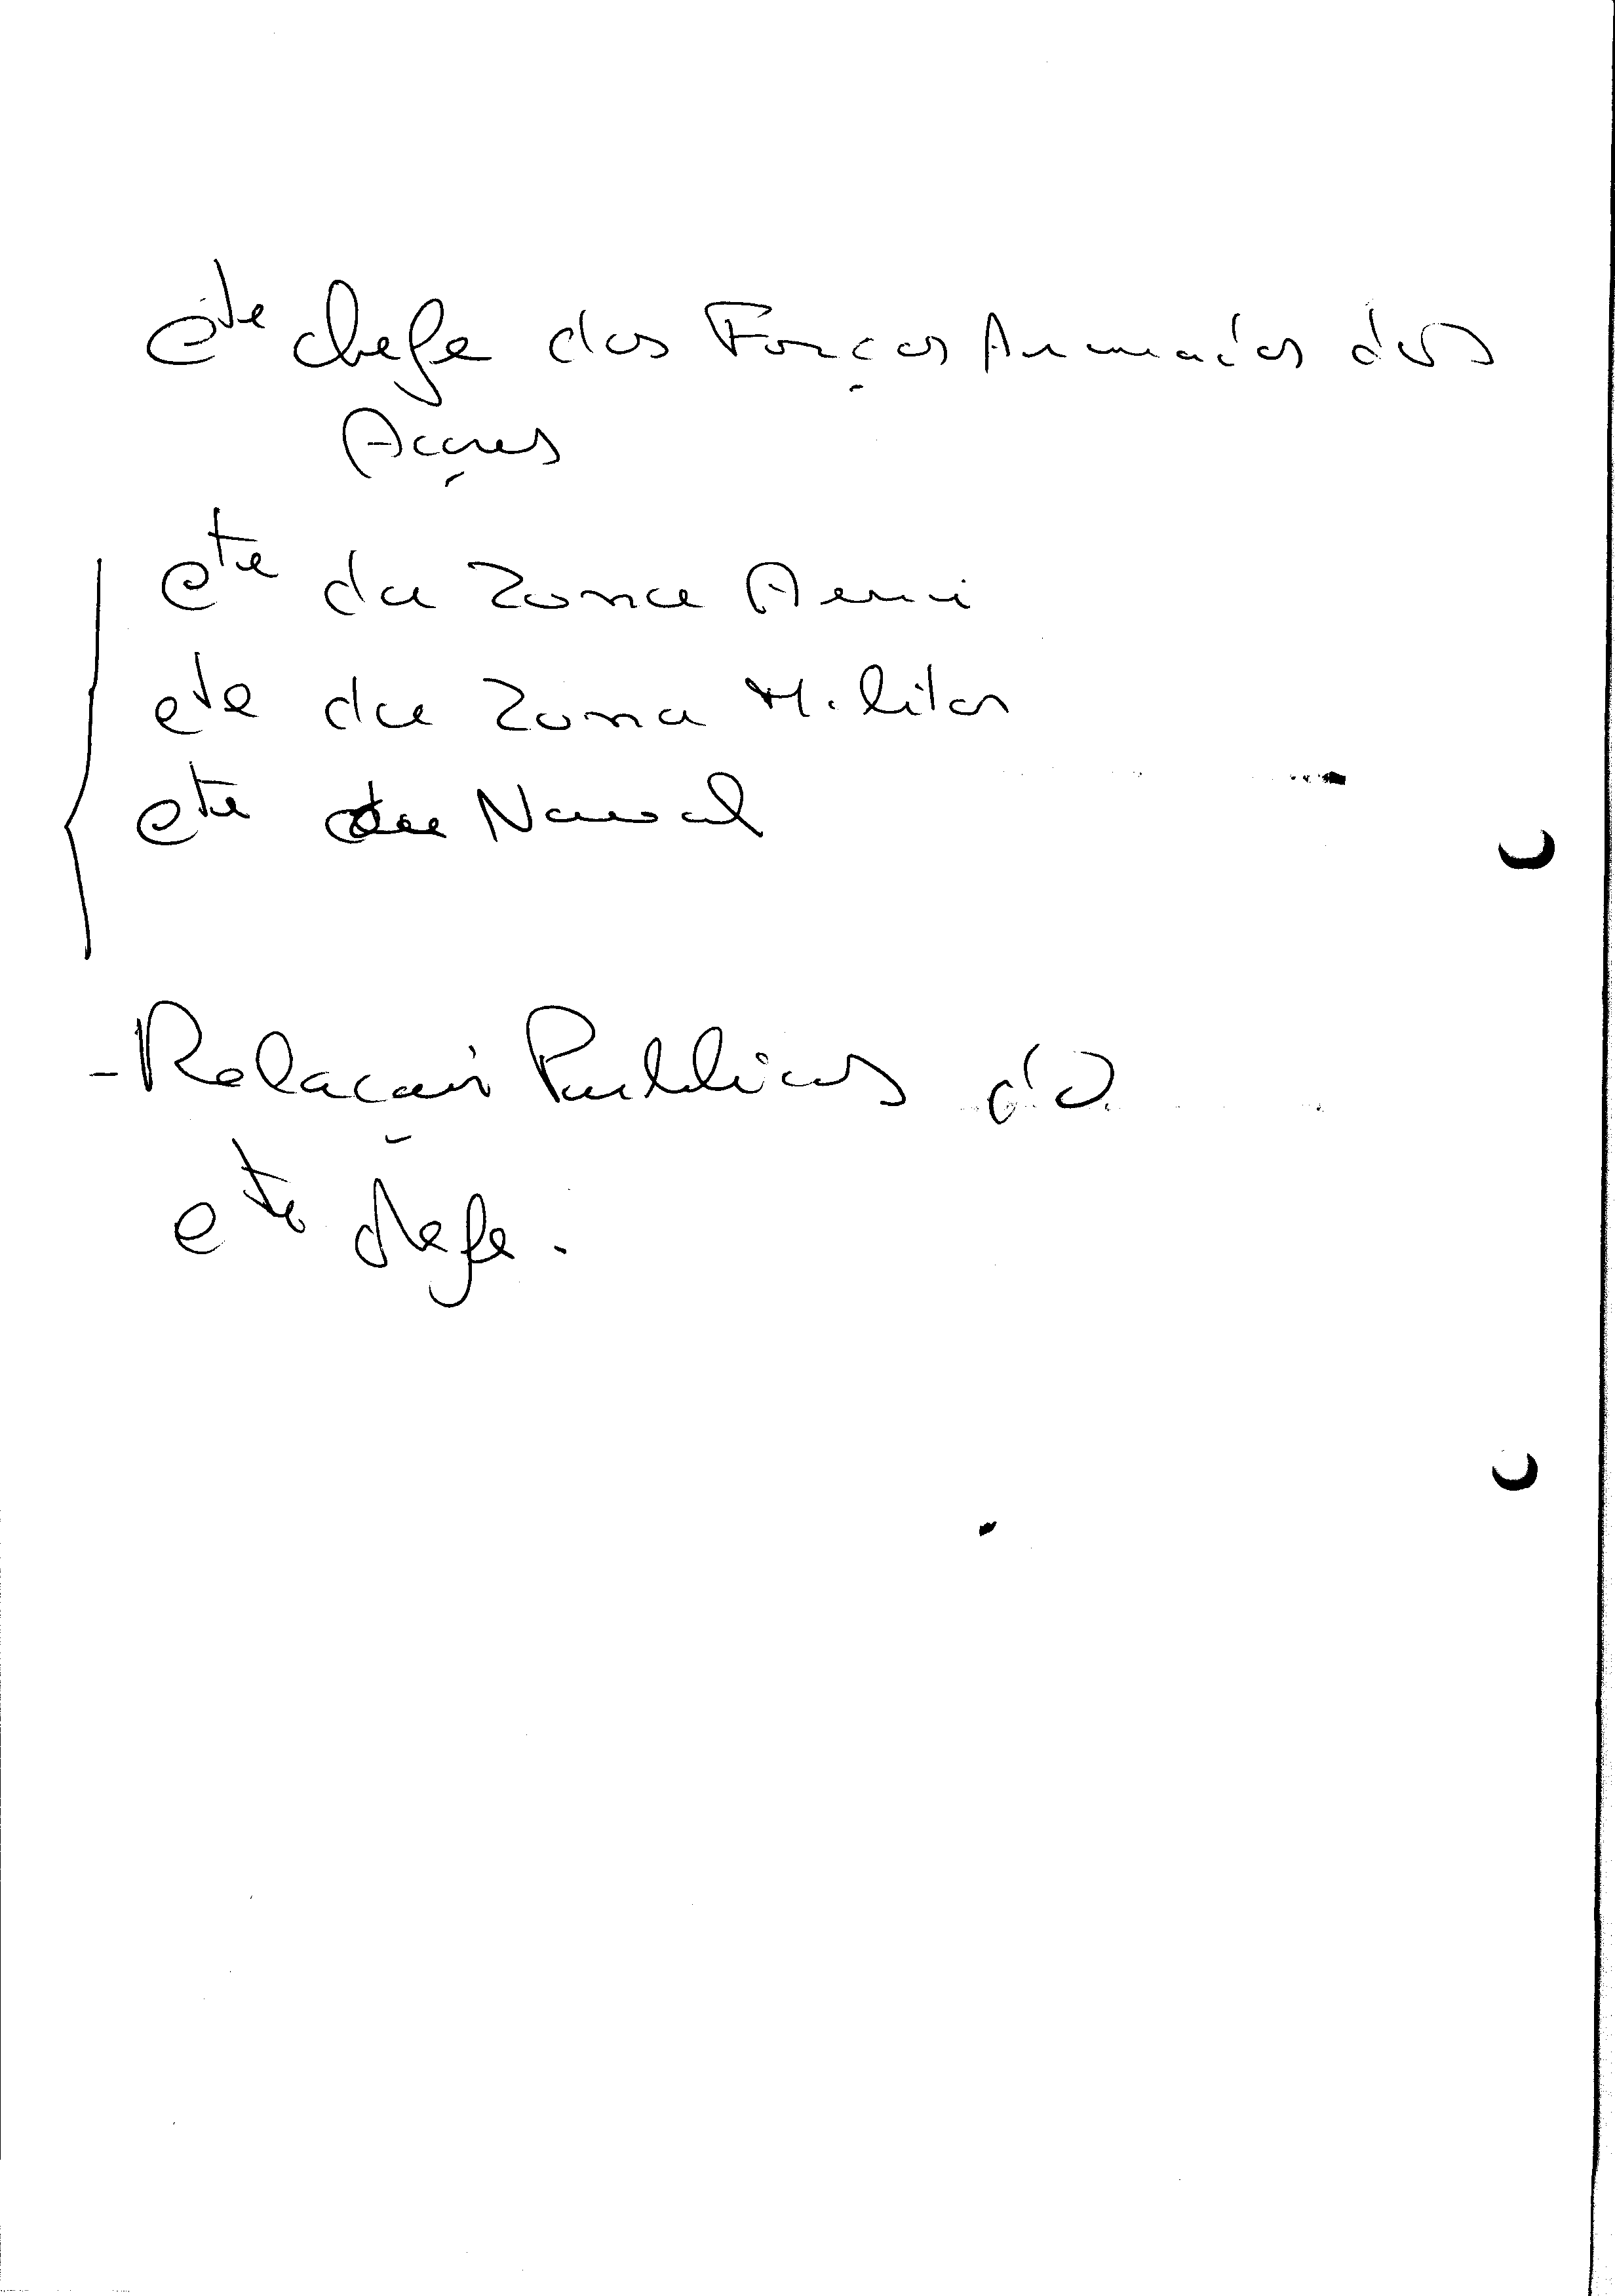 Cte chefe das Forças Armadas dos
Açores
Cte da Zona Aerea
Cte da Zona Militar
Cte da Naval
- Relações Publicas do
Cte chefe.